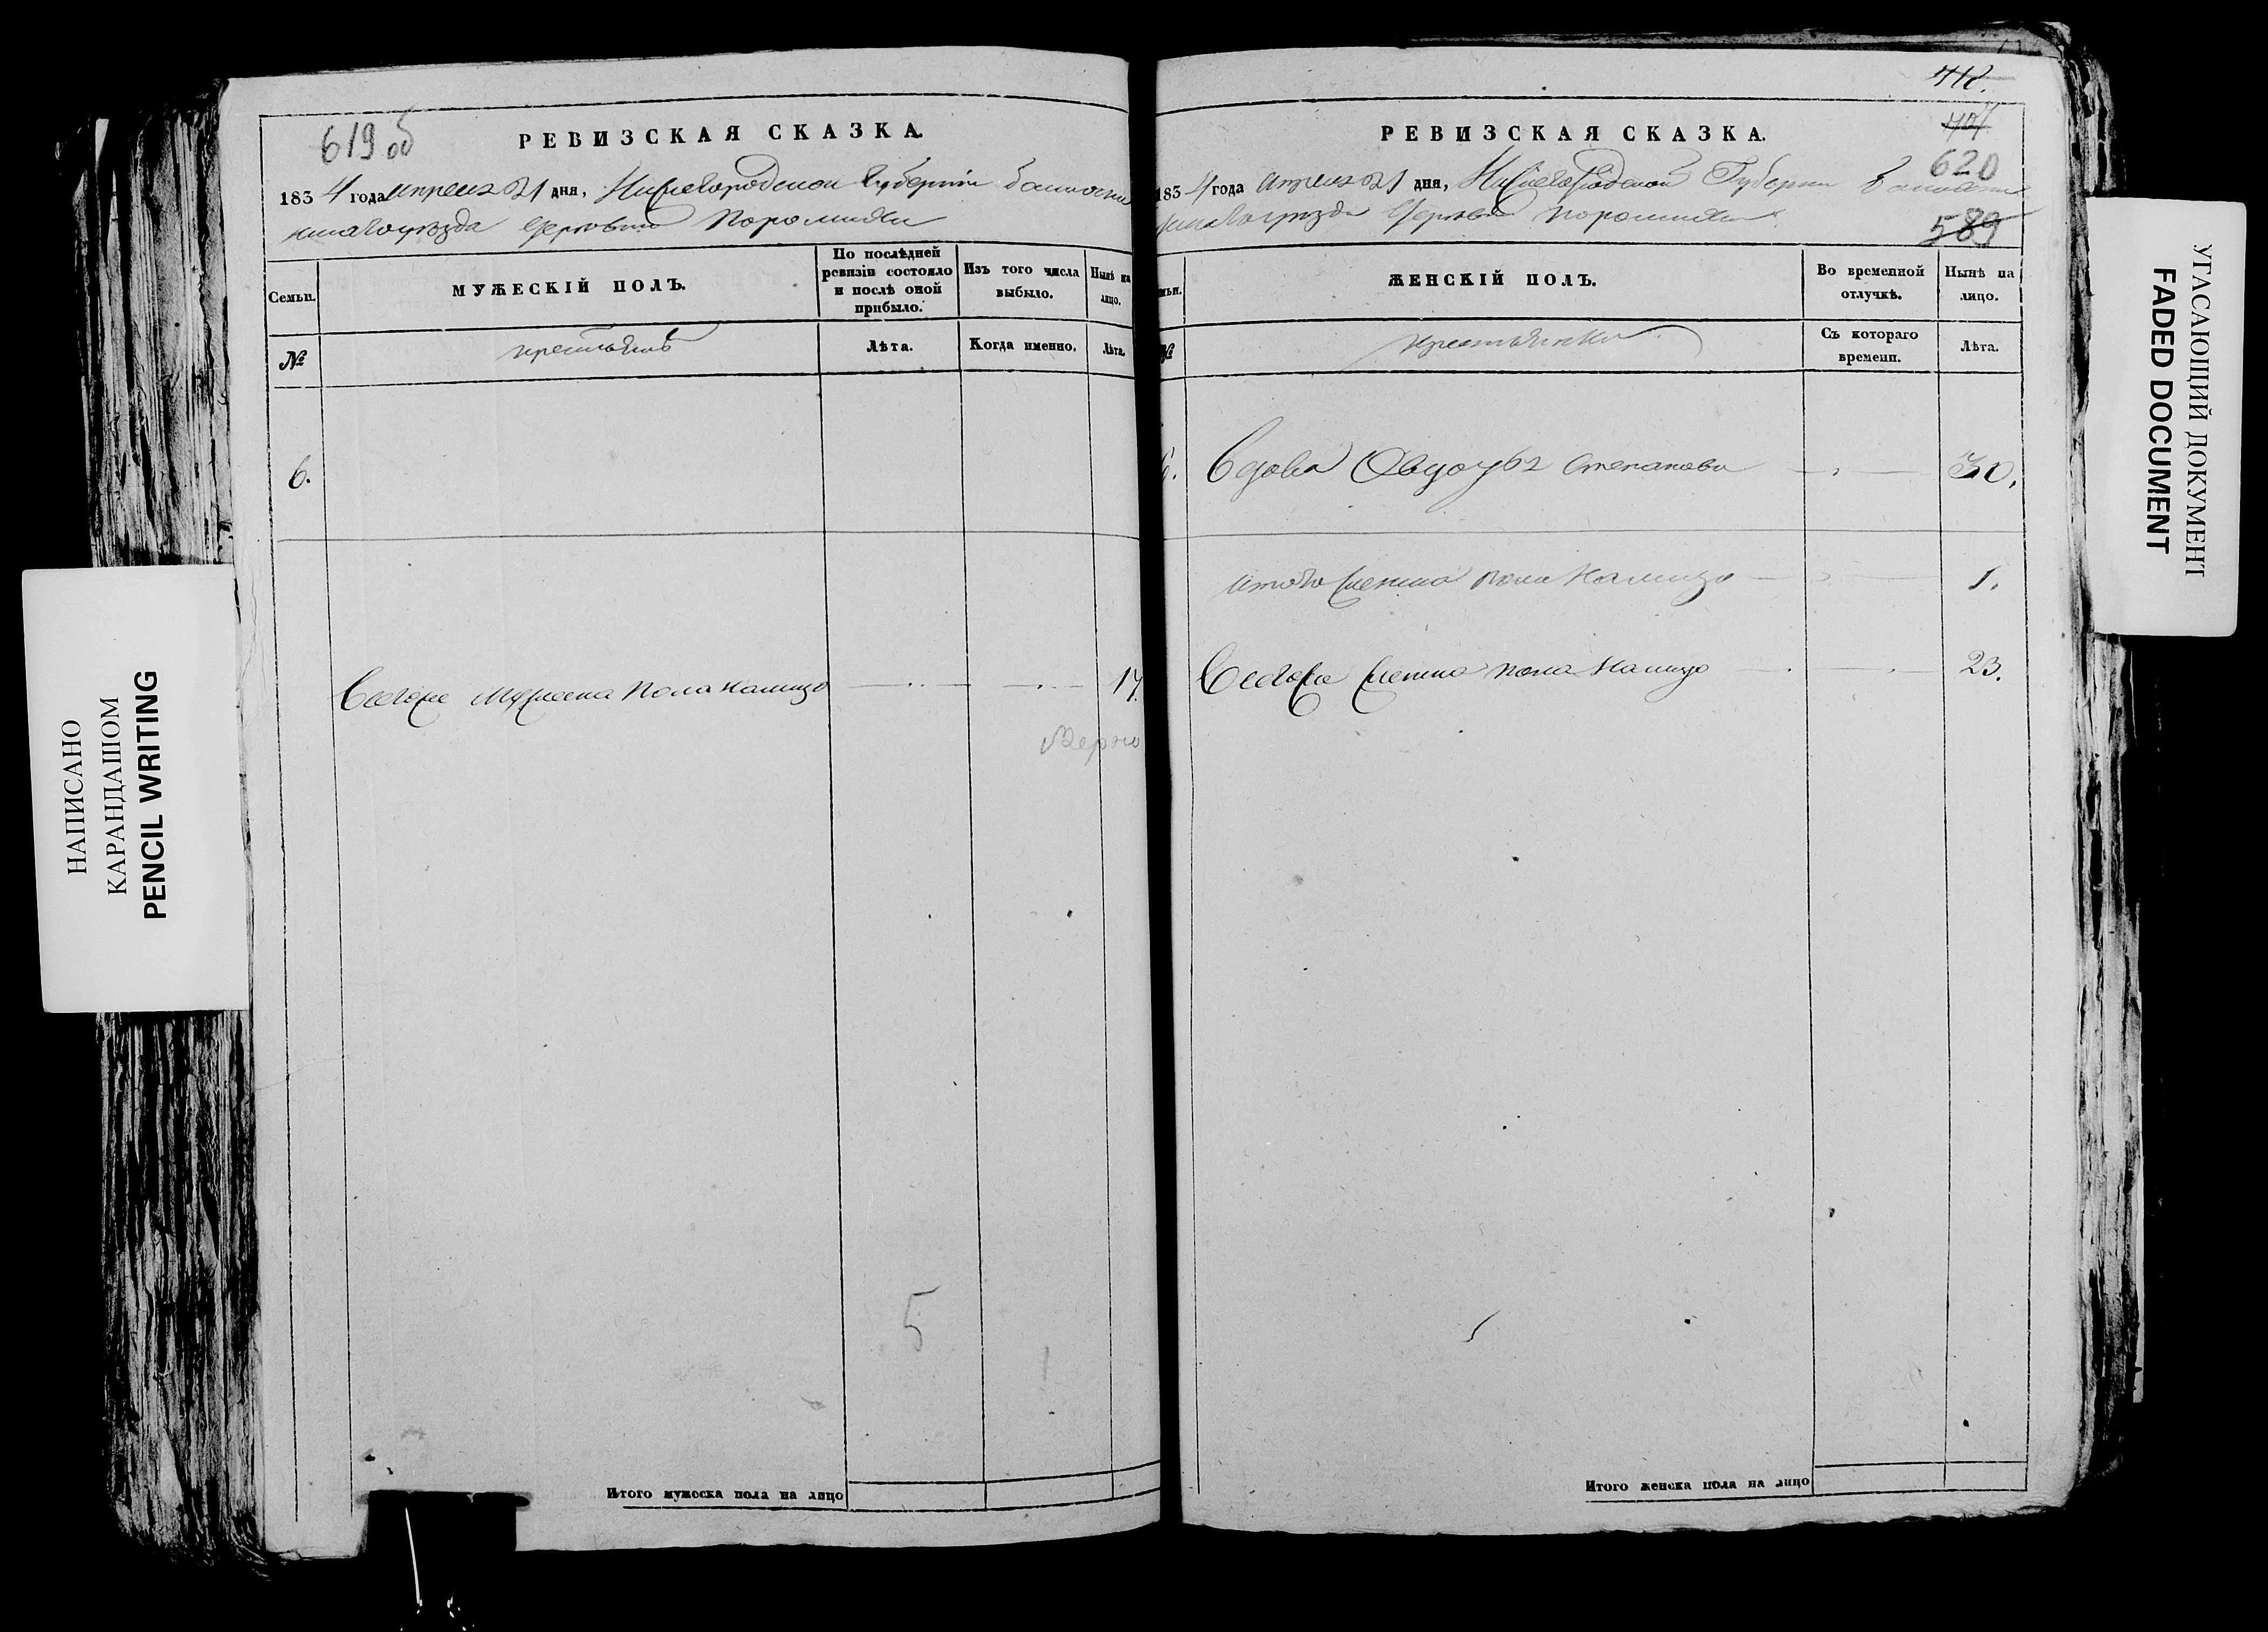 619 об
РЕВИЗСКАЯ СКАЗКА.
1834 года апреля 21 дня, Нижегородской Губернии
уезда деревни
Семьи.
МУЖЕСКІЙ ПОЛЪ.
По послѣдней ревизіи состояло и послѣ оной прибыло.
Изъ того числа выбыло.
Нынѣ на лицо.
№
крестьянъ
Лѣта.
Когда именно.
Лѣта.
6.
Всего же мужеска пола налицо 17.
Верно
5
Итого мужеска пола на лицо
712.
620
589
РЕВИЗСКАЯ СКАЗКА.
1834 года апреля 21 дня, Нижегородской Губернии
уезда деревни
ЖЕНСКІЙ ПОЛЪ.
Во временной отлучкѣ.
Нынѣ на лицо.
№
крестьянки
Съ котораго времени.
Лѣта.
6. Вдова Авдотья Степанова 30.
итого женска пола налицо 1.
Всего же женска пола налицо 23.
Итого женска пола на лицо
НАПИСАНО
КАРАНДАШОМ
PENCIL WRITING
УГАСАЮЩИЙ ДОКУМЕНТ
FADED DOCUMENT